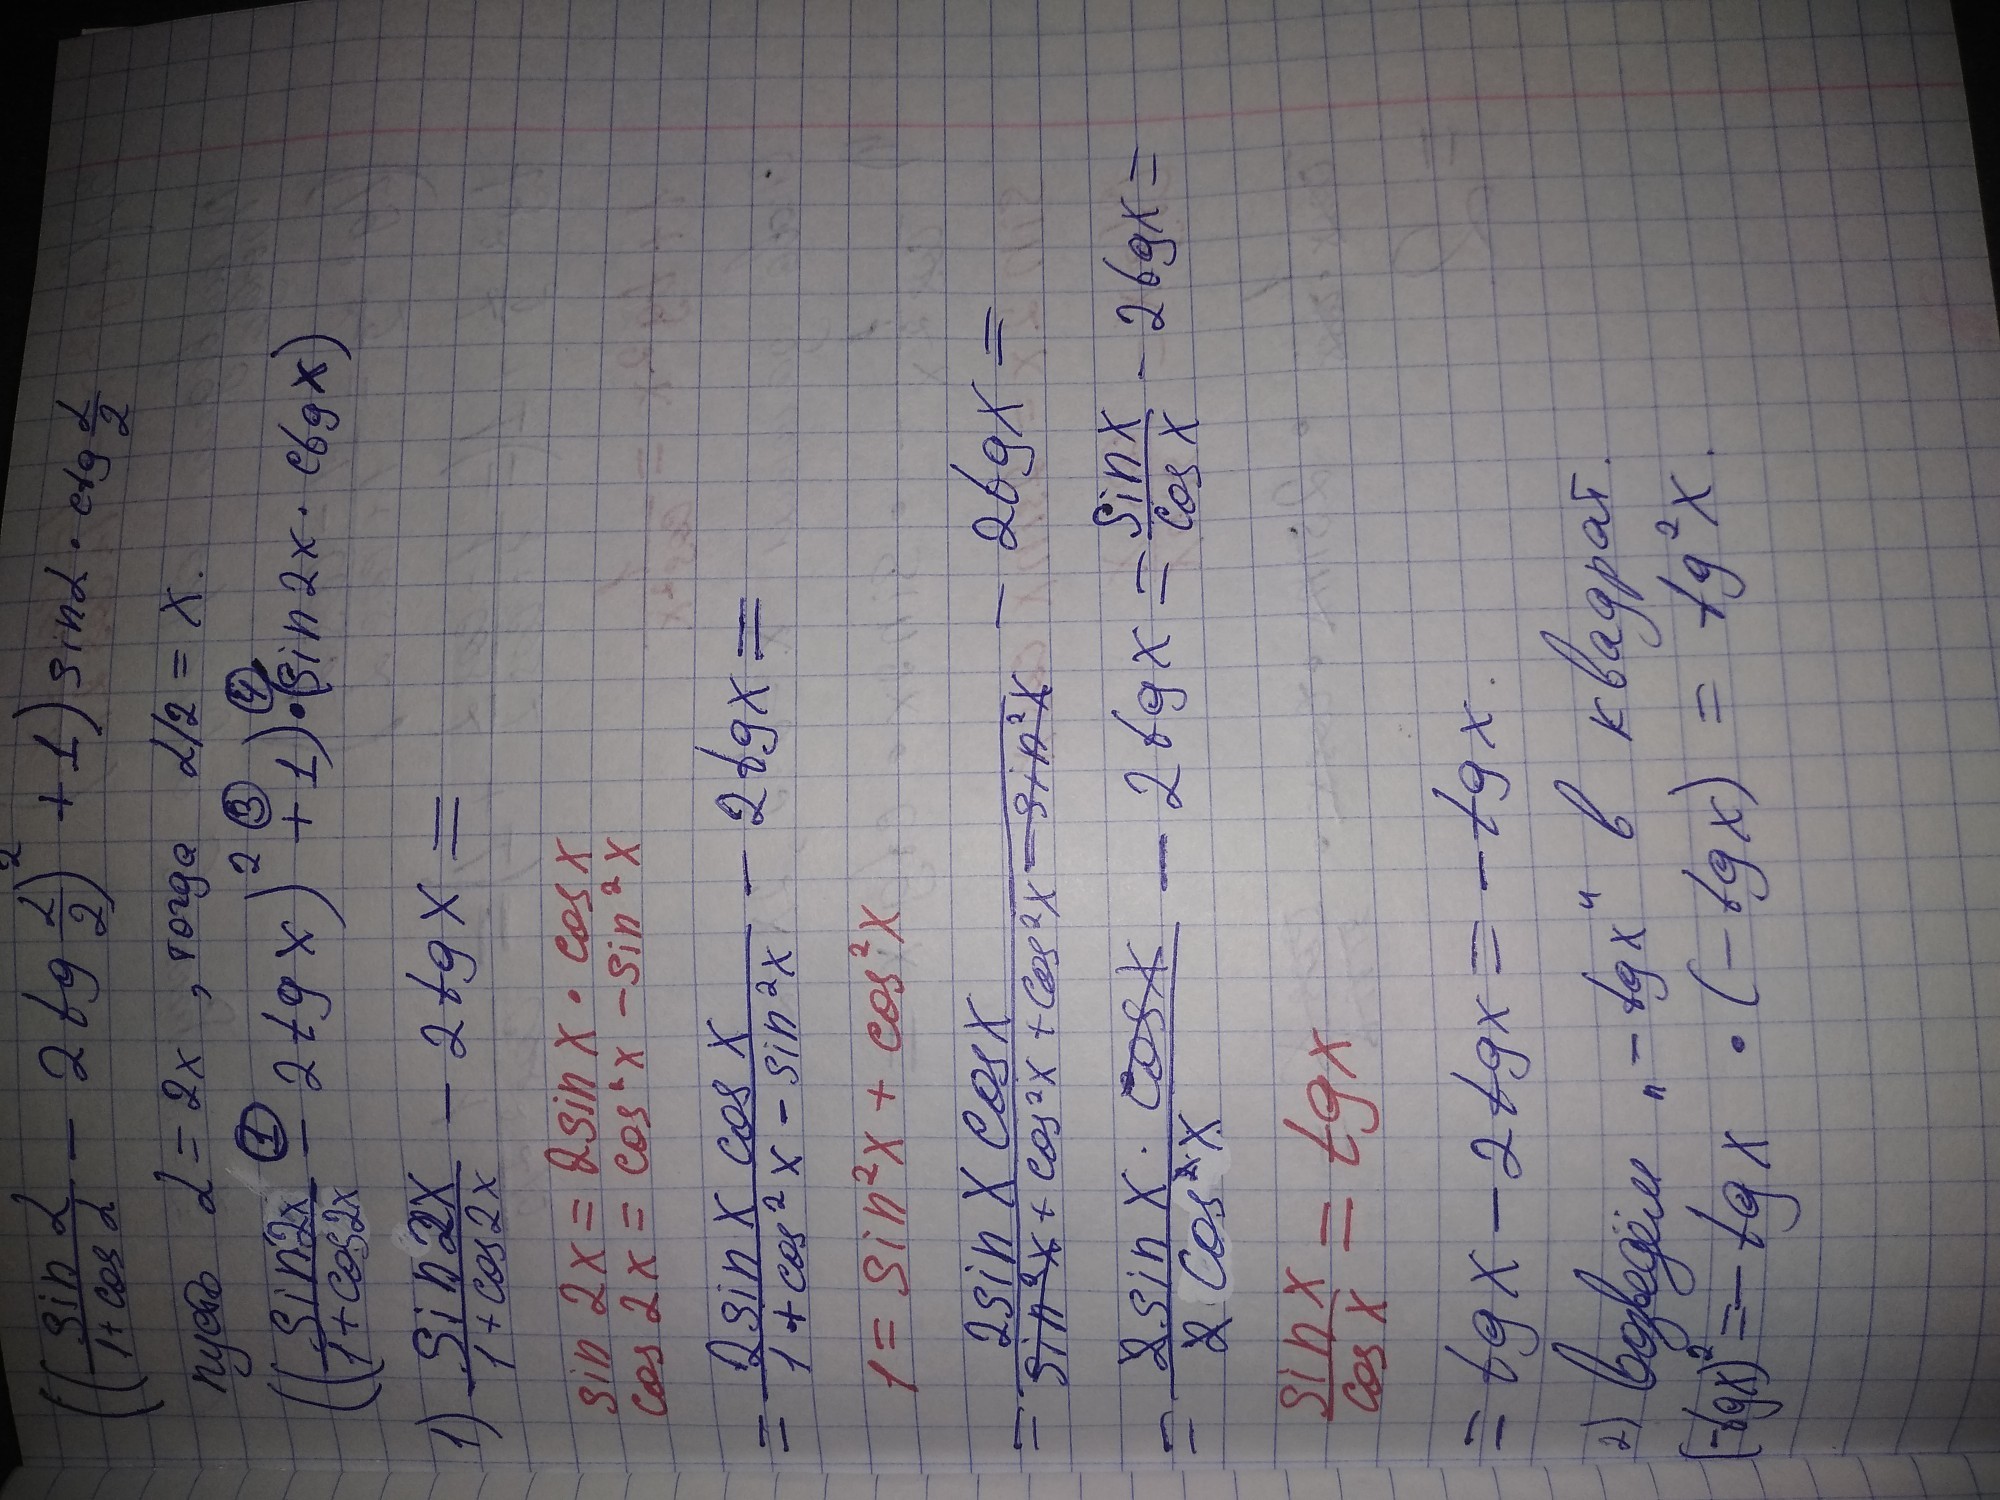 ((sin α / 1+cos α − 2tg α/2)² + 1) sin α · ctg α/2
пусть α = 2x, тогда α/2 = x.
((sin2x / 1+cos2x ① − 2tg x)² ③ + 1) ④ · (sin 2x · ctg x)
1) sin 2x / 1+cos2x − 2tg x =
sin 2x = 2sin x · cos x
cos 2x = cos²x − sin²x
= 2sin x cos x / 1+cos²x − sin²x − 2tg x =
1 = sin²x + cos²x
= 2sin x cos x / sin²x + cos²x + cos²x − sin²x − 2tg x =
= 2sin x · cos x / 2 cos²x − 2tg x = sin x / cos x − 2tg x =
sin x / cos x = tg x
= tg x − 2tg x = − tg x.
2) возведём "− tg x" в квадрат.
(−tg x)² = − tg x · (− tg x) = tg²x.